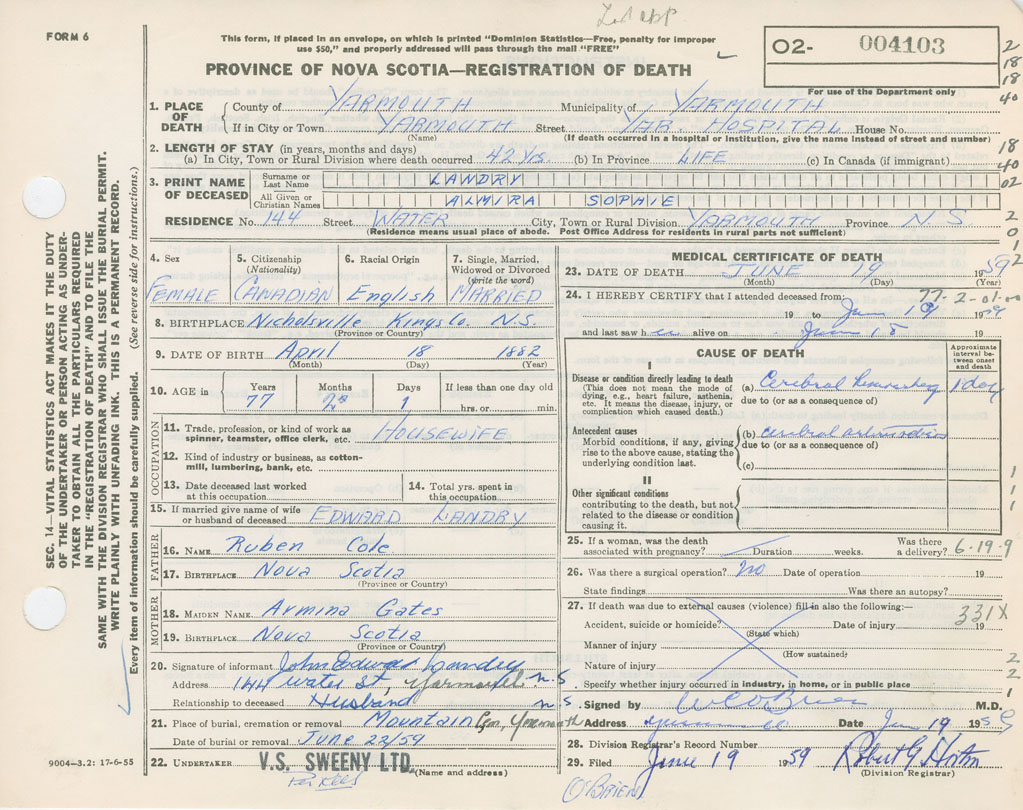 Led app
FORM 6
This form, if placed in an envelope, on which is printed "Dominion Statistics—Free, penalty for improper
use $50," and properly addressed will pass through the mail "FREE"
O2- 004103
For use of the Department only
PROVINCE OF NOVA SCOTIA—REGISTRATION OF DEATH
1. PLACE OF DEATH
County of YARMOUTH Municipality of YARMOUTH
If in City or Town YARMOUTH Street YAR. HOSPITAL House No.
(Name) (If death occurred in a hospital or institution, give the name instead of street and number)
2. LENGTH OF STAY (in years, months and days)
(a) In City, Town or Rural Division where death occurred 42 Yrs. (b) In Province LIFE (c) In Canada (if immigrant)
3. PRINT NAME OF DECEASED
Surname or Last Name LANDRY
All Given or Christian Names ALMIRA SOPHIE
RESIDENCE No. 144 Street WATER City, Town or Rural Division YARMOUTH Province N.S.
(Residence means usual place of abode. Post Office Address for residents in rural parts not sufficient)
4. Sex
FEMALE
5. Citizenship (Nationality)
CANADIAN
6. Racial Origin
English
7. Single, Married, Widowed or Divorced (write the word)
MARRIED
8. BIRTHPLACE Nicholsville Kings Co. N.S.
(Province or Country)
9. DATE OF BIRTH April 18 1882
(Month) (Day) (Year)
10. AGE in
Years 77
Months 2
Days 1
If less than one day old
hrs. or min.
OCCUPATION
11. Trade, profession, or kind of work as spinner, teamster, office clerk, etc. HOUSEWIFE
12. Kind of industry or business, as cotton-mill, lumbering, bank, etc.
13. Date deceased last worked at this occupation
14. Total yrs. spent in this occupation
15. If married give name of wife or husband of deceased EDWARD LANDRY
FATHER
16. NAME Ruben Cole
17. BIRTHPLACE Nova Scotia
(Province or Country)
MOTHER
18. MAIDEN NAME Armina Gates
19. BIRTHPLACE Nova Scotia
(Province or Country)
20. Signature of informant John Edward Landry
Address 144 Water St, Yarmouth N.S.
Relationship to deceased Husband N.S.
21. Place of burial, cremation or removal Mountain Cem, Yarmouth
Date of burial or removal June 22/59
22. UNDERTAKER V.S. SWEENY LTD.
(Name and address)
9004—3.2: 17-6-55
MEDICAL CERTIFICATE OF DEATH
23. DATE OF DEATH JUNE 19 1959
(Month) (Day) (Year)
24. I HEREBY CERTIFY that I attended deceased from: 77-2-01-00
19 to June 19 1959
and last saw her alive on June 18 19
CAUSE OF DEATH
Approximate interval between onset and death
I
Disease or condition directly leading to death
(This does not mean the mode of dying, e.g., heart failure, asthenia, etc. It means the disease, injury, or complication which caused death.)
(a) Cerebral Hemorrhage 1 day
due to (or as a consequence of)
Antecedent causes
Morbid conditions, if any, giving rise to the above cause, stating the underlying condition last.
(b) Cerebral
due to (or as a consequence of)
(c)
II
Other significant conditions contributing to the death, but not related to the disease or condition causing it.
25. If a woman, was the death associated with pregnancy? Duration weeks. Was there a delivery? 6-19-9
26. Was there a surgical operation? no Date of operation 19
State findings Was there an autopsy?
27. If death was due to external causes (violence) fill in also the following:—
Accident, suicide or homicide? Date of injury 19 331X
(State which)
Manner of injury
(How sustained)
Nature of injury
Specify whether injury occurred in industry, in home, or in public place
Signed by W C O'Brien M.D.
Address Date Jun 19 1959
28. Division Registrar's Record Number
29. Filed June 19 1959
(Division Registrar)
O'BRIEN
SEC. 14—VITAL STATISTICS ACT MAKES IT THE DUTY
OF THE UNDERTAKER OR PERSON ACTING AS UNDER-
TAKER TO OBTAIN ALL THE PARTICULARS REQUIRED
IN THE "REGISTRATION OF DEATH" AND TO FILE THE
SAME WITH THE DIVISION REGISTRAR WHO SHALL ISSUE THE BURIAL PERMIT.
WRITE PLAINLY WITH UNFADING INK. THIS IS A PERMANENT RECORD.
Every item of information should be carefully supplied. (See reverse side for instructions.)
2
18
18
40
18
40
02
2
0
1
2
1
1
1
2
2
1